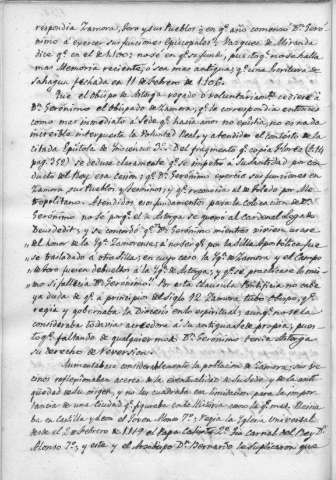 respondia Zamora, Toro y sus Pueblos; en qᵉ año comenzó Dⁿ Gero-
nimo á exercer sus funciones Episcopales? Vazquez de Miranda
dice qᵉ en el de 1100; no sé en qᵉ se funde, pues to qᵉ no se halla
mas Memoria reciente, ó sea mas antigua, qᵉ una Escritura de
Sahagun fechada en 11 de Febrero de 1102.
Que el Obispo de Astorga rogado ó voluntariamente cediera á
Dⁿ Geronimo el Obispado de Zamora, qᵉ le correspondia entonces
como mas inmediato á Sede qᵉ hacia años no existia, no es nada
increible interpuesta la Voluntad Real, y atendido el contexto de la
citada Epistola de Inocencio 3º. Del fragmento qᵉ copia Florez (t. 14
pag. 352) se deduce claramente qᵉ se impetró á Su Santidad por con-
ducto del Rey esa cesion; qᵉ Dⁿ Geronimo exerció sus funciones en
Zamora sus Pueblos y terminos; y qᵉ reconocia al de Toledo por Me-
tropolitano. Atendidos en fundamentos para la colocacion de Dⁿ
Geronimo no sé porqᵉ el de Astorga se quejó al Cardenal Legado
Deusdedit; y se convino qᵉ Dⁿ Geronimo mientras viviera, usara
el honor de la Ygᵃ Zamorense; á no ser qᵉ por la Silla Apostolica fue-
se trasladado á otra Silla; en cuyo caso la Ygᵃ de Zamora y el Campo
de Toro fuesen devueltos á la Ygᵃ de Astorga, y qᵉ se practicase lo mis-
mo si fallecia Dⁿ Geronimo. Por esta Clausula Pontificia no cabe
ya duda de qᵉ á principio del siglo 12 Zamora tubo Obispo, qᵉ
regia y gobernaba la Diocesis en lo espiritual; aunqᵉ no se la
consideraba todavia acreedora á su antigua Sede propia, pues-
toqᵉ faltando de cualquier modo Dⁿ Geronimo tenia Astorga
su derecho de reversion.
Aumentabase considerablemente la poblacion de Zamora: sus ve-
cinos reflexionaban acerca de la eventualidad de su Sede y de la anti-
güedad de su origen, y no les cuadraba en limitacion para la impor-
tancia de una Ciudad qᵉ figuraba en la Historia como la qᵉ mas. Reina-
ba en Castilla y Leon el Joven Alonso 7º; regia la Iglesia Universal
desde el 2 de Febrero de 1119 el Papa Calixto 2º tio carnal del Rey Dⁿ
Alonso 7º; y este y el Arzobispo Dⁿ Bernardo, le suplicaron que